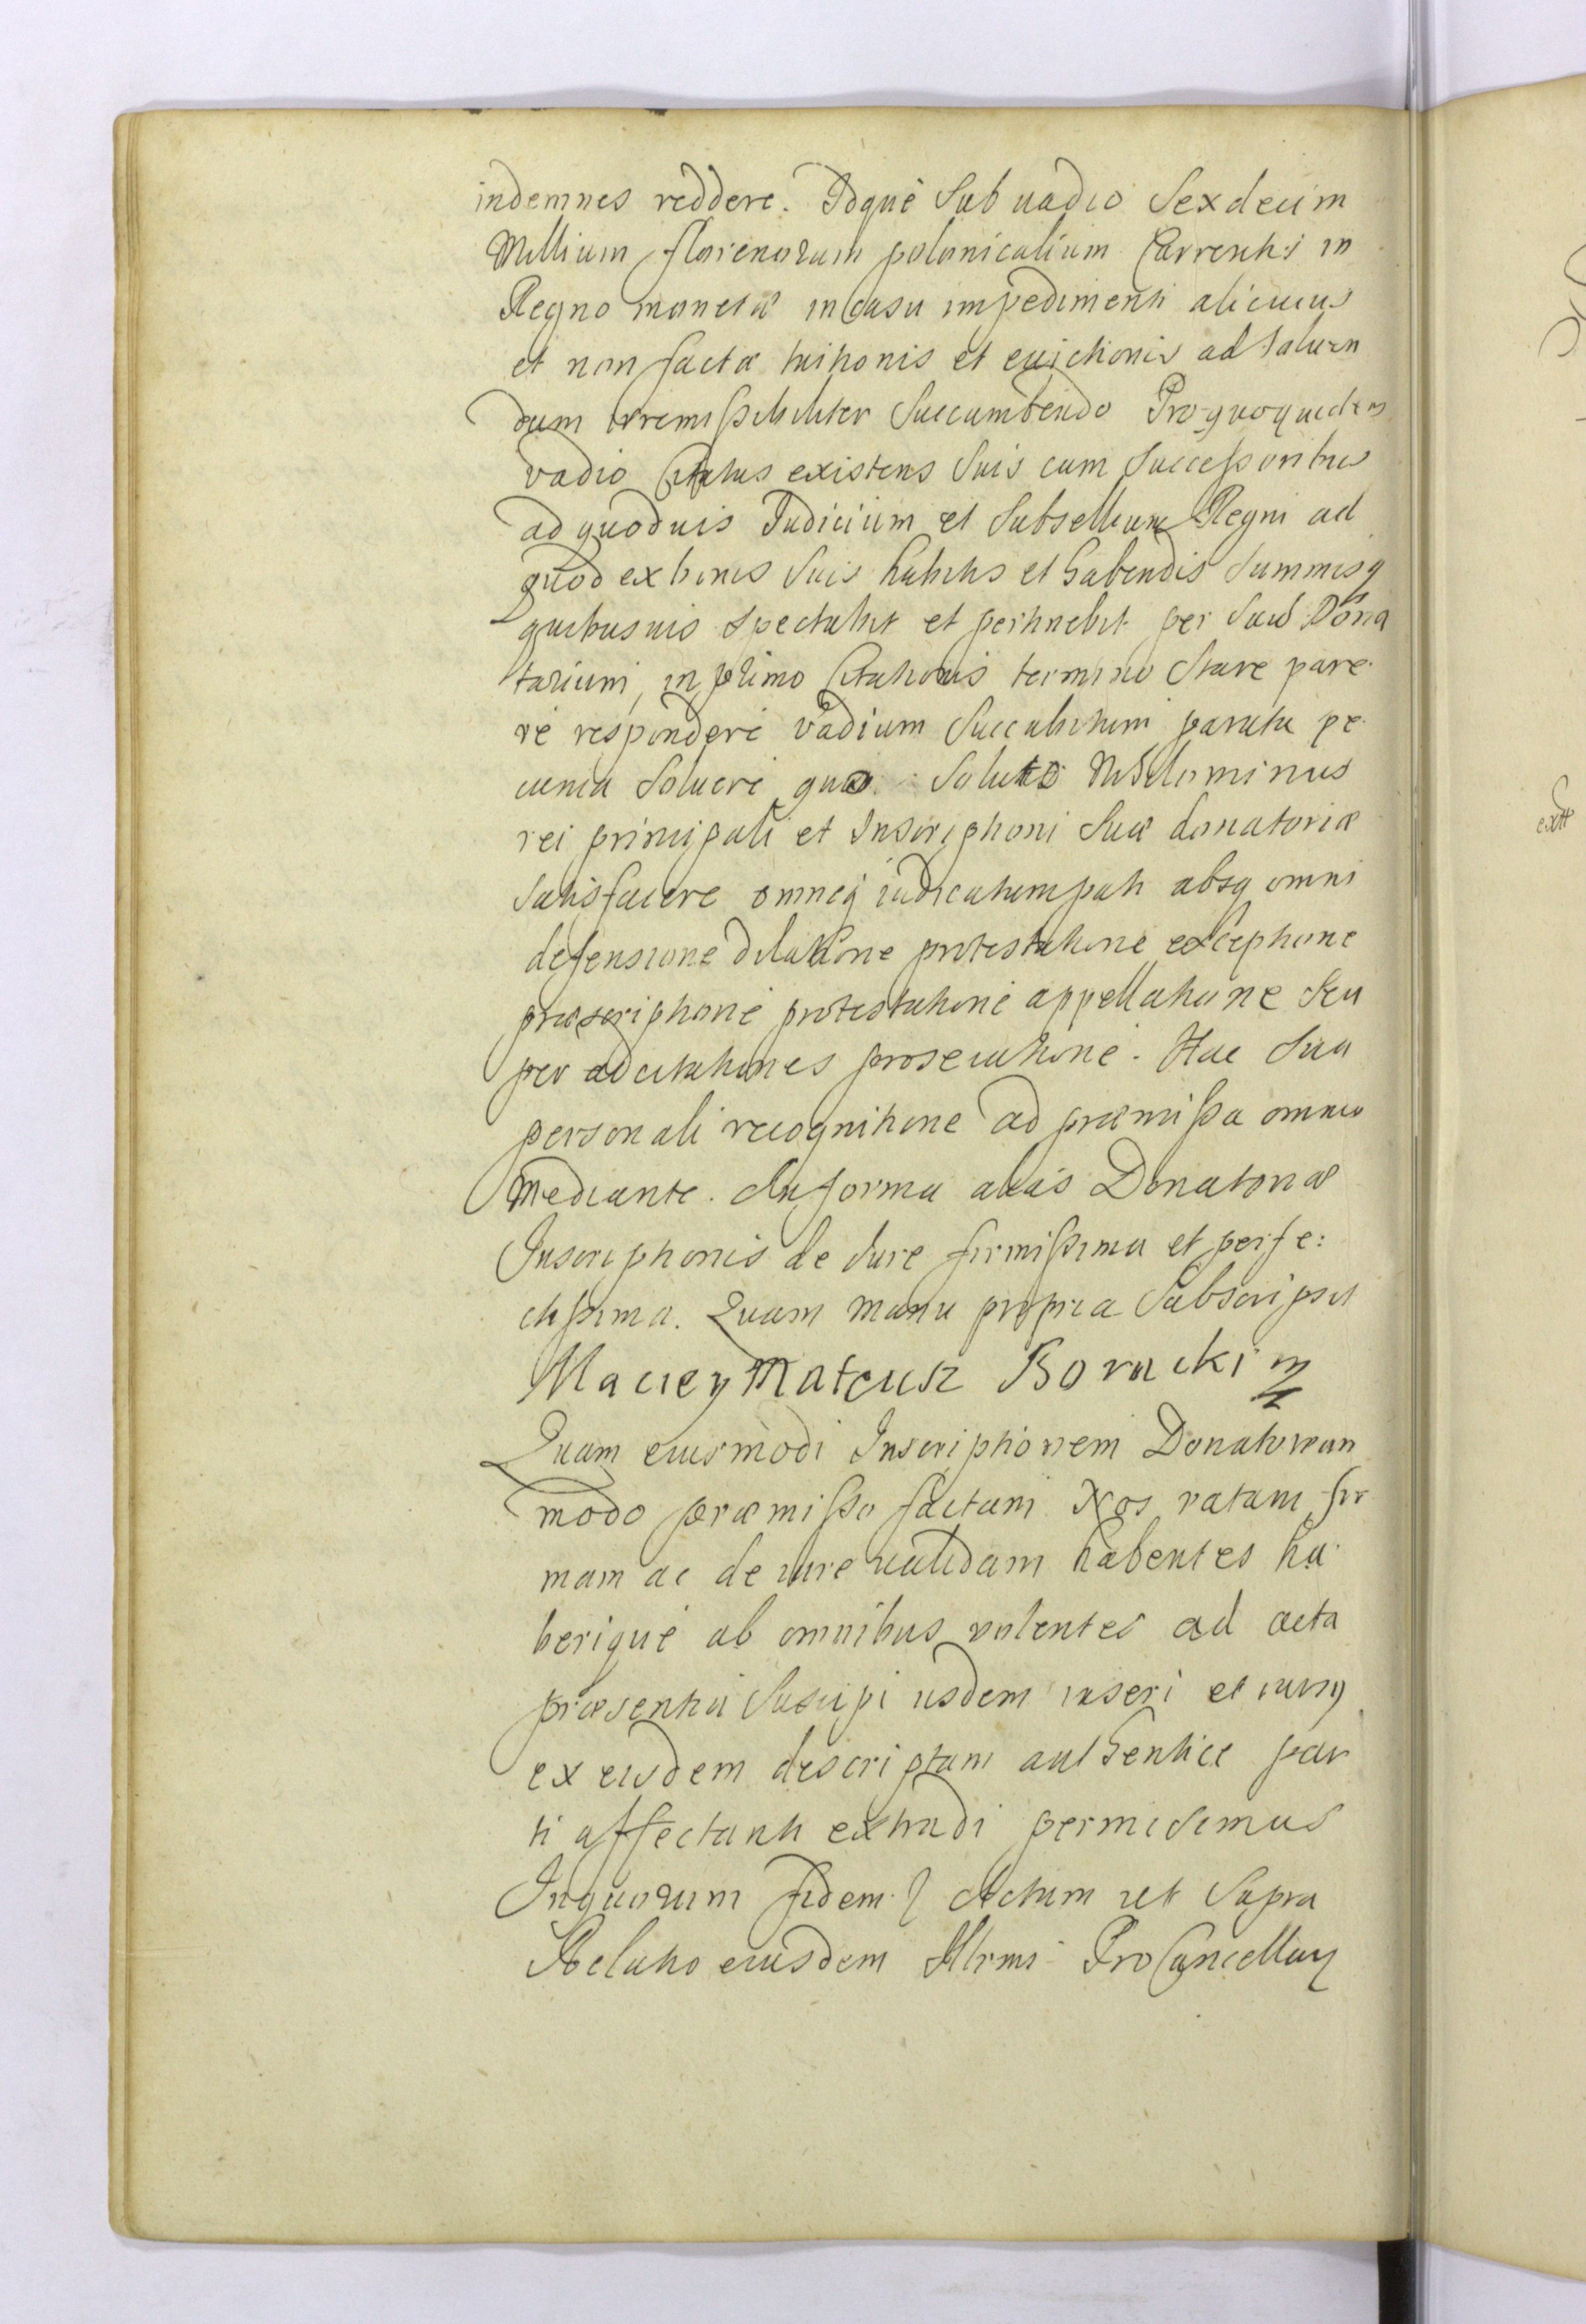 indemnes reddere. Idque Sub uadio Sexdecim
Millium florenorum polonicalium Currentis in
Regno monetæ in Casu impedimenti alicuius
et non factæ tuitionis et euictionis ad Soluen
dum irremissibiliter Succumbendo Pro quoquidem
vadio Citatus existens Suis cum Successoribus
ad quoduis Iudicium et Subsellium Regni ad
quod ex bonis Suis habitis et habendis Summisq
quibusuis Spectabit et pertinebit per Suū Dona
tarium, in primo Citationis termino Stare pare
re respondere vadium Succubitum parata pe
cunia Soluere quo Soluto Nihilominus
rei principali et Inscriptioni Suæ donatoriæ
Satisfacere omneq iudicatum pati absq omni
defensione dilatione protestatione exceptione
præscriptione protestatione appellatione Seu
per adcitationes prosecutione. Hac Sua
personali recognitione ad præmissa omnia
mediante. In forma alias Donatoriæ
Inscriptionis de Iure firmissima et perfe:
ctissima. Quam manu propria Subscripsit
Maciey Mateusz Boracki m
Quam eiusmodi Inscriptionem Donatoriam
modo præmisso factam Nos ratam fir
mam ac de iure ualidam habentes ha
berique ab omnibus uolentes ad acta
præsentia Suscipi iisdem inseri et eamq
ex eisdem descriptam authentice par
ti affectanti extradi permisimus
In quorum fidem Actum ut Supra
Relatio eiusdem Illrmi ProCancellarÿ